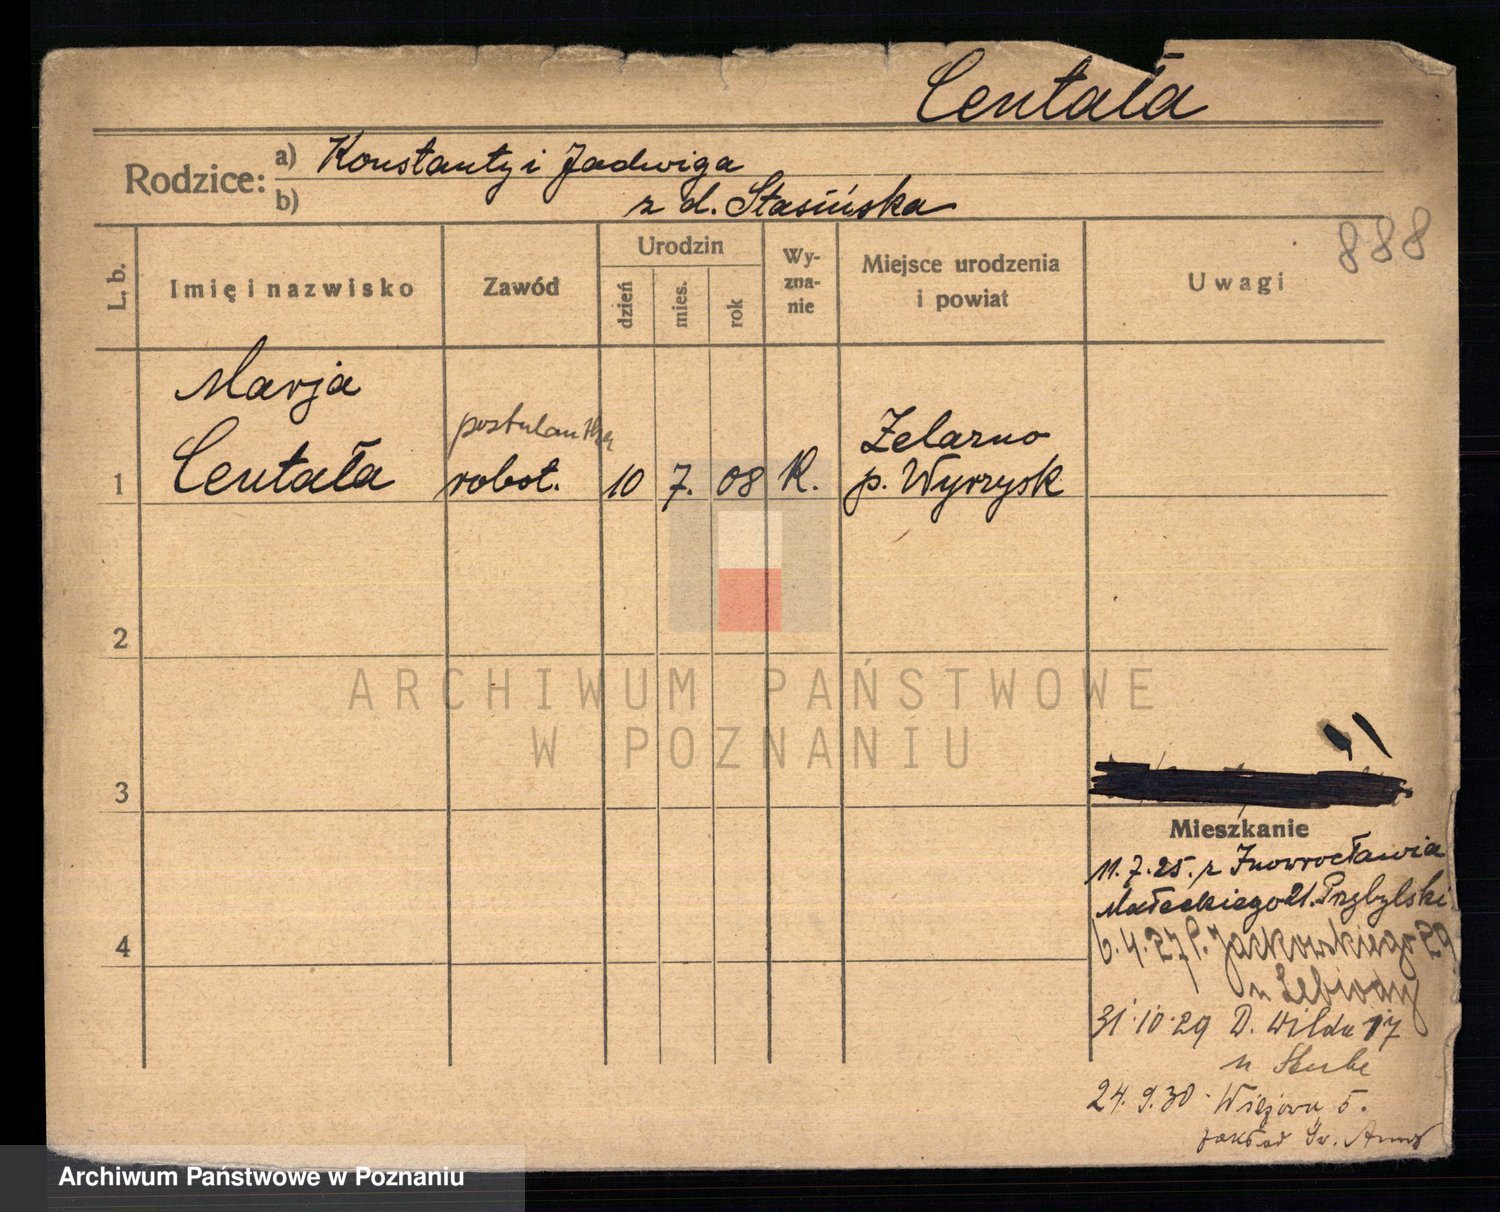 Centała
Rodzice: a) Konstanty i Jadwiga
b) z d. Stasińska
888
L. b.
Imię i nazwisko
Zawód
Urodzin
dzień
mies.
rok
Wy-
zna-
nie
Miejsce urodzenia
i powiat
Uwagi
Marja
postulantka
Żelazno
1 Centała robot. 10 7. 08 K. p. Wyrzysk
2
ARCHIWUM PAŃSTWOWE
W POZNANIU
3
Mieszkanie
11.7.25. z Inowrocławia
Małeckiego 21. Przybylski
6.4.27 P. Jackowskiego 29
4
u Lebiody
31.10.29 D. Wilda 17
u Skube
24.9.30. Wiejowa 5.
zakład Św. Anny
Archiwum Państwowe w Poznaniu